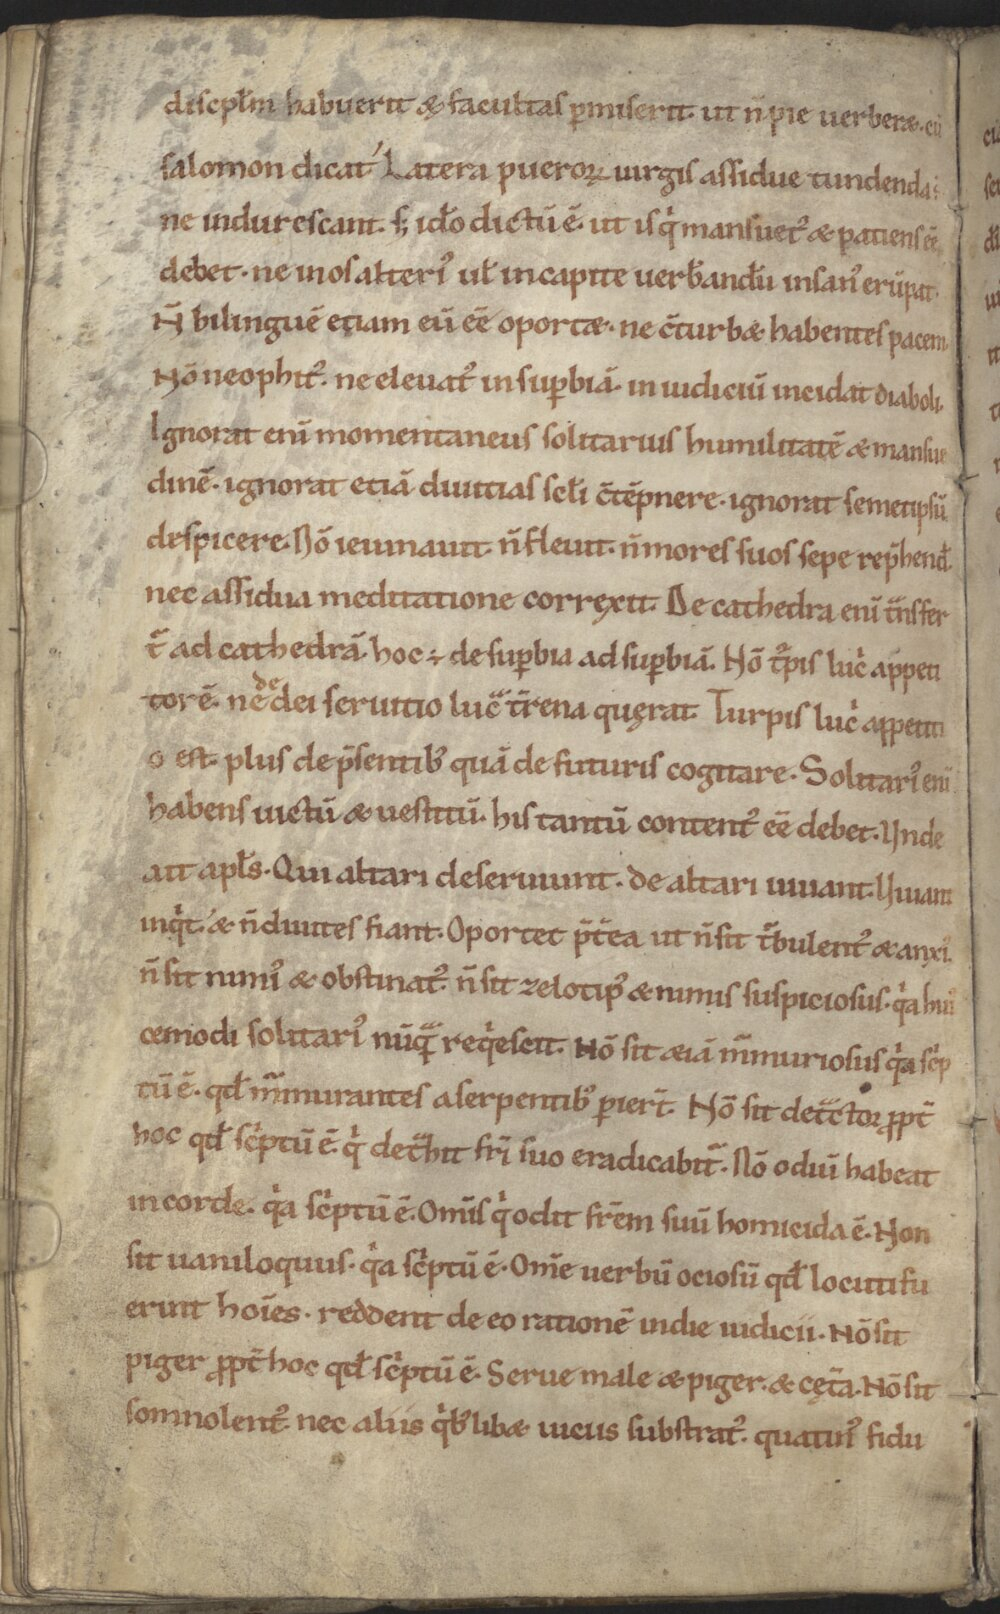 discipl̄m habuerit & facultas ꝑmiserit. ut n̄ pie uerber&. cū
salomon dicat. Latera pueroꝝ uirgis assidue tundenda s̄.
ne indurescant. sꝫ ido dictū ē. ut is q̇ mansuet᷒ & patiens eē
debet. ne in os alteri᷒ ul̄ in capite uerƀandū insani᷒ erūpat.
N̄ bilinguē etiam eū eē oport&. ne ↄ̄turb& habentes pacem.
Nō neophit᷒. ne eleuat᷒ in suꝑbiā. in iudiciū incidat diaboli.
Ignorat enī momentaneus solitarius humilitatē & mansue
dinē. ignorat etiā diuitias sc̄li ↄ̄tēpnere. ignorat semetipsū
despicere. Nō ieiunauit. n̄ fleuit. n̄ mores suos sepe rep̄hend̄.
nec assidua meditatione correxit. De cathedra enī t̄nsfer
t᷑ ad cathedrā. hoc ÷ de suꝑbia ad suꝑbiā. Nō t᷑pis luc̓ appeti
torē. ne de dei seruitio luc̄ t̄rena quęrat. Turpis luc̓ appetiti
o est. plus de p̄sentib᷒ quā de futuris cogitare. Solitari᷒ enī
habens uictū & uestitū. his tantū content᷒ eē debet. Unde
ait apl̄s. Qui altari deseruiunt. de altari uiuant. Uiuant
inq̇t. & n̄ diuites fiant. Oportet p̄t̄ea ut n̄ sit t᷑bulent᷒ & anxi᷒.
n̄ sit nimi᷒ & obstinat᷒. n̄ sit zelotip᷒ & nimis suspiciosus. q̇a hui᷒
cemodi solitari᷒ nūq̄ req̇escit. Nō sit &iā m᷑muriosus q̇a sc̓p
tū ē. qd̄ m᷑murantes a serpentib᷒ ꝑier̄t. Nō sit det̄ctor ꝓpt̄
hoc qd̄ sc̓ptū ē. q̇ det̄hit fr̄i suo eradicabit᷑. Nō odiū habeat
in corde. q̇a sc̓ptū ē. Omīs q̇ odit fr̄em suū homicida ē. Non
sit uaniloquus. q̇a sc̓ptū ē. Om̄e uerbū ociosū qd̄ locuti fu
erint hoīes. reddent de eo rationē in die iudicii. Nō sit
piger ꝓpt̄ hoc qd̄ sc̓ptū ē. Serue male & piger. & cęt̄a. Nō sit
somnolent᷒. nec aliis q̇b᷒lib& uiciis substrat᷒. quatin᷒ fidu